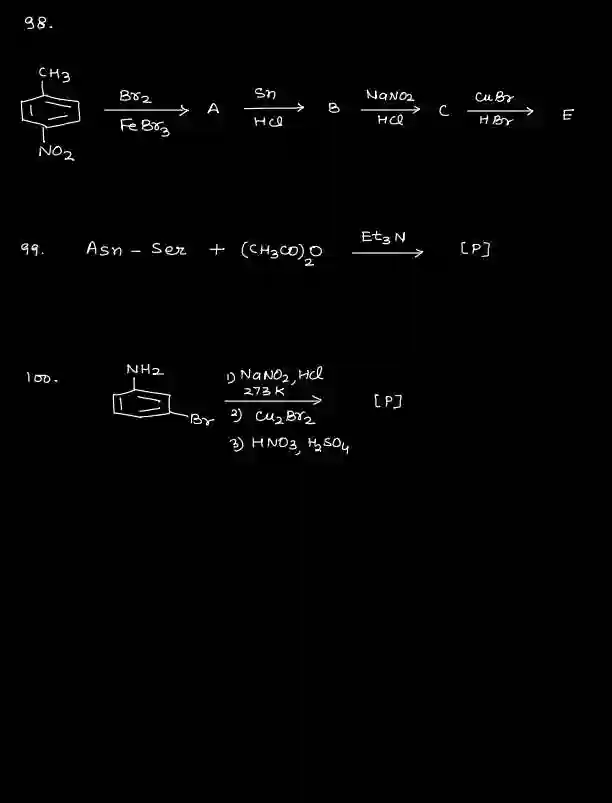 98.
CH3
NO2
Br2
FeBr3
A
Sn
HCl
B
NaNO2
HCl
C
CuBr
HBr
E
99. Asn - Ser + (CH3CO)2O Et3N [P]
100.
NH2
Br
1) NaNO2, HCl
273 K
2) Cu2Br2
3) HNO3, H2SO4
[P]